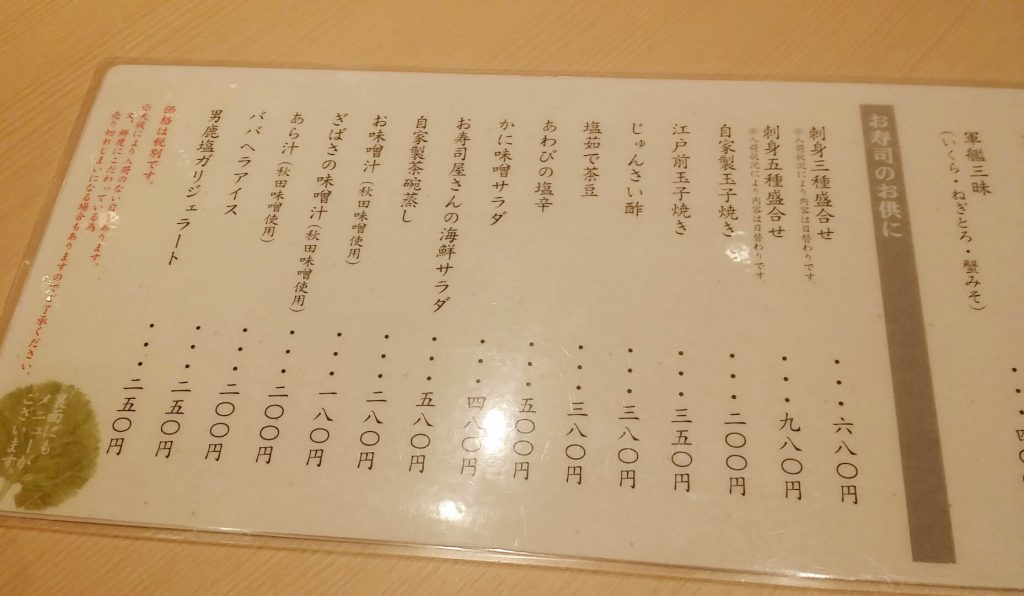 軍艦三昧
(いくら・ねぎとろ・蟹みそ)
お寿司のお供に
刺身三種盛合せ・・・六八〇円
※入荷状況により内容は日替わりです。
刺身五種盛合せ・・・九八〇円
※入荷状況により内容は日替わりです。
自家製玉子焼き・・・二〇〇円
江戸前玉子焼き・・・三五〇円
じゅんさい酢・・・三八〇円
塩茹で茶豆・・・三八〇円
あわびの塩辛・・・五〇〇円
かに味噌サラダ・・・四八〇円
お寿司屋さんの海鮮サラダ・・・五八〇円
自家製茶碗蒸し・・・二八〇円
お味噌汁(秋田味噌使用)・・・一八〇円
ぎばさの味噌汁(秋田味噌使用)・・・二〇〇円
あら汁(秋田味噌使用)・・・二〇〇円
ババヘラアイス・・・二五〇円
男鹿塩ガリジェラート・・・二五〇円
価格は税別です。
※天候により入荷のない日もあります。
又、鮮度にこだわっている為、
売り切れしまいになる場合もありますのでご了承ください。
裏面にも
メニューが
ございます